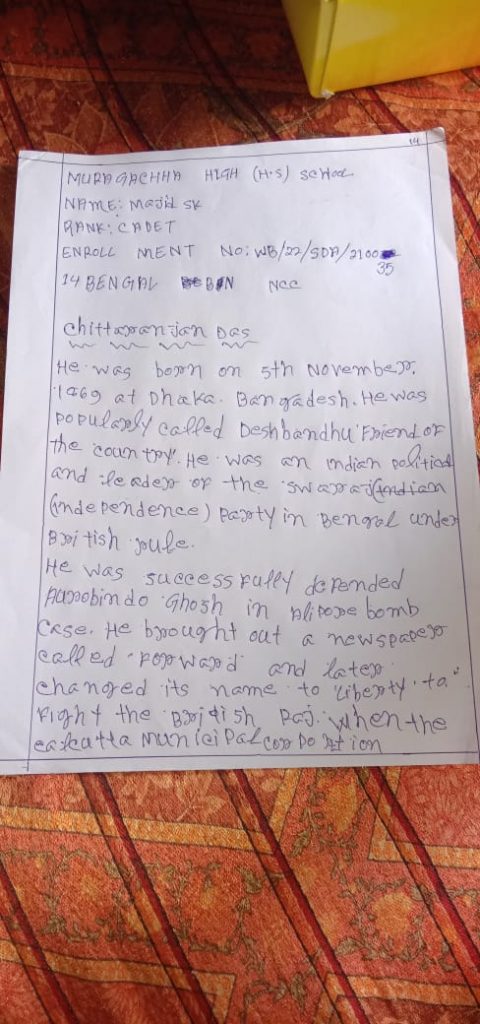 14
MURAGACHHA HIGH (H.S) SCHOOL
NAME: Majid SK
RANK: CADET
ENROLL MENT NO: WB/22/SDA/2100
35
14 BENGAL BN NCC
Chittaranjan Das
He was born on 5th November,
at Dhaka. Bangadesh. He was
popularly called Deshbandhu 'Friend of
the country'. He was an indian political
and leader of the swaraj (indian
independence) party in Bengal under
British rule.
He was successfully defended
Aurobindo Ghosh in Alipore bomb
Case. He brought out a newspaper
called Forward and later
changed its name to 'Liberty' to
Fight the British Raj. When the
calcutta Municipal corporation